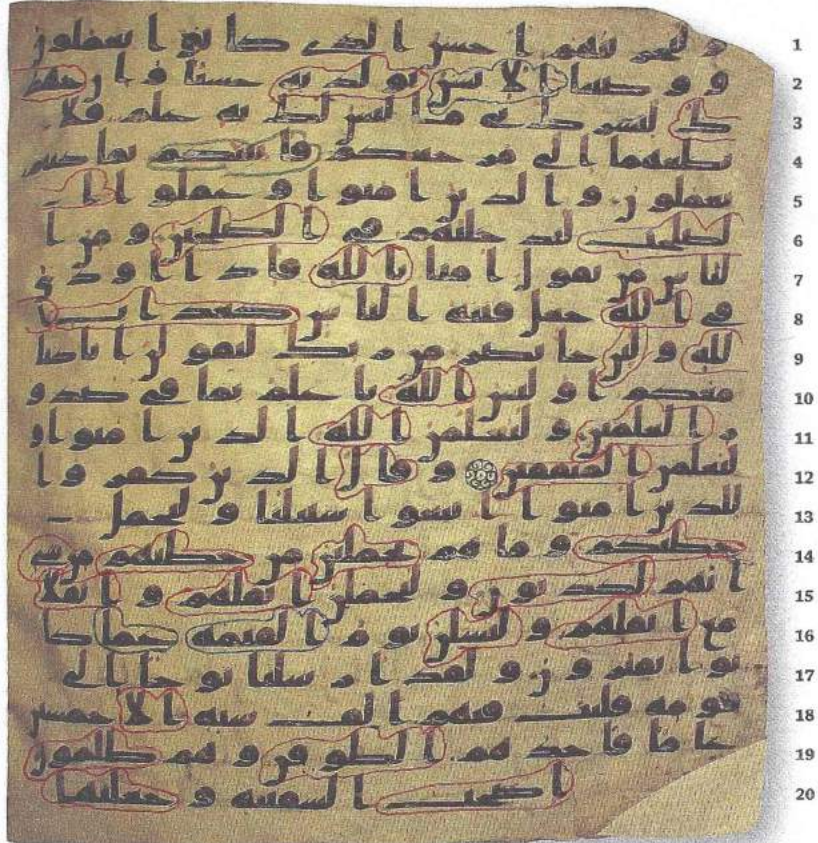 و لنجزينهم احسن الذى كانوا يعملون
و وصينا الانسن بولديه حسنا وان جهد
ك لتشرك بى ما ليس لك به علم فلا
تطعهما الى مرجعكم فانبئكم بما كنتم
تعملون والذين امنوا وعملوا ا
لصلحت لندخلنهم فى الصلحين ومن ا
لناس من يقول امنا بالله فاذا اوذى
فى الله جعل فتنه الناس كعذاب ا
لله ولئن جا نصر من ربك ليقولن انا كنا
معكم اوليس الله باعلم بما فى صدو
ر العلمين وليعلمن الله الذين امنوا و
ليعلمن المنفقين وقال الذين كفروا
للذين امنوا اتبعوا سبيلنا ولنحمل
خطيكم وما هم بحملين من خطيهم من شى
انهم لكذبون وليحملن اثقلهم واثقلا
مع اثقلهم وليسلن يوم القيمه عما كا
نوا يفترون ولقد ارسلنا نوحا الى
قومه فلبث فيهم الف سنه الا خمسين
عاما فاخذهم الطوفن وهم ظلمون
اصحب السفينه وجعلنها
1
2
3
4
5
6
7
8
9
10
11
12
13
14
15
16
17
18
19
20